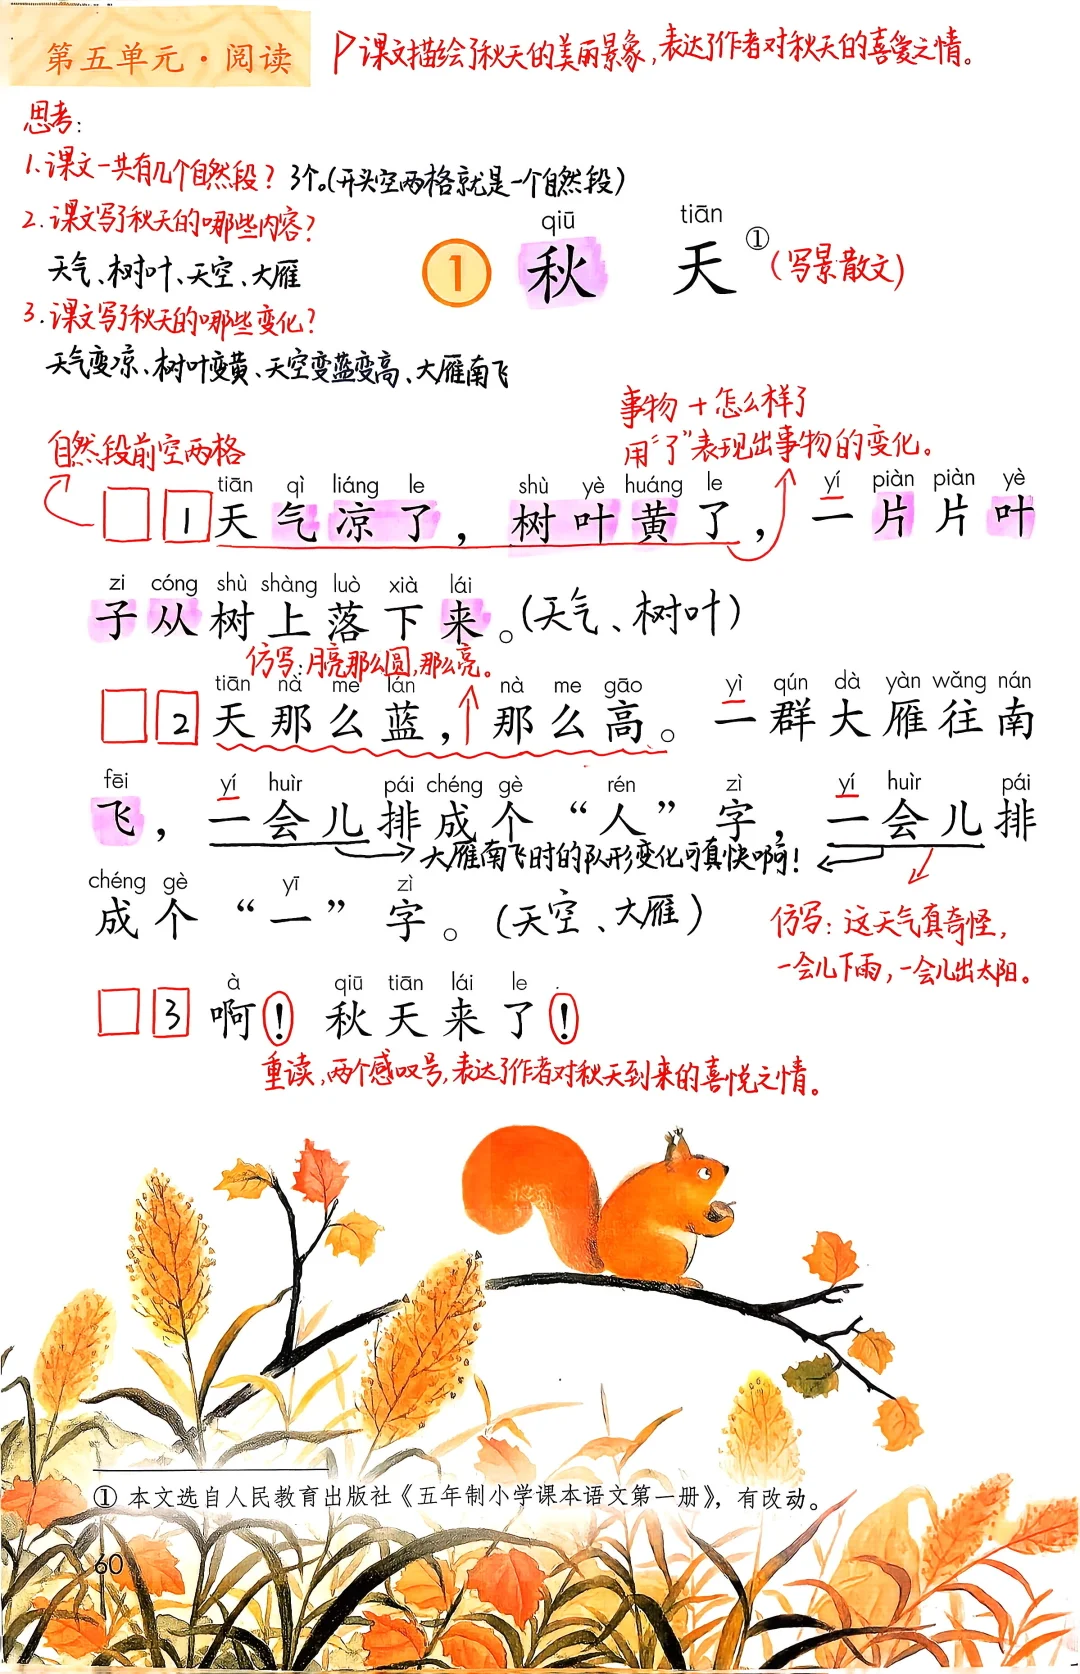 第五单元·阅读
课文描绘了秋天的美丽景象，表达了作者对秋天的喜爱之情。
思考：
1.课文一共有几个自然段？3个。(开头空两格就是一个自然段)
2.课文写了秋天的哪些内容？
天气、树叶、天空、大雁
qiū tiān
1 秋 天 ①(写景散文)
3.课文写了秋天的哪些变化？
天气变凉、树叶变黄、天空变蓝变高、大雁南飞
事物＋怎么样了
用“了”表现出事物的变化。
自然段前空两格
tiān qì liáng le shù yè huáng le yí piàn piàn yè
1 天气凉了，树叶黄了，一片片叶
zi cóng shù shàng luò xià lái
子从树上落下来。(天气、树叶)
仿写：月亮那么圆，那么亮。
tiān nà me lán nà me gāo yì qún dà yàn wǎng nán
2 天那么蓝，那么高。一群大雁往南
fēi yí huìr pái chéng gè rén zì yí huìr pái
飞，一会儿排成个“人”字，一会儿排
大雁南飞时的队形变化可真快啊！
chéng gè yī zì
成个“一”字。(天空、大雁)
仿写：这天气真奇怪，
一会儿下雨，一会儿出太阳。
à qiū tiān lái le
3 啊！秋天来了！
重读，两个感叹号，表达了作者对秋天到来的喜悦之情。
① 本文选自人民教育出版社《五年制小学课本语文第一册》，有改动。
60